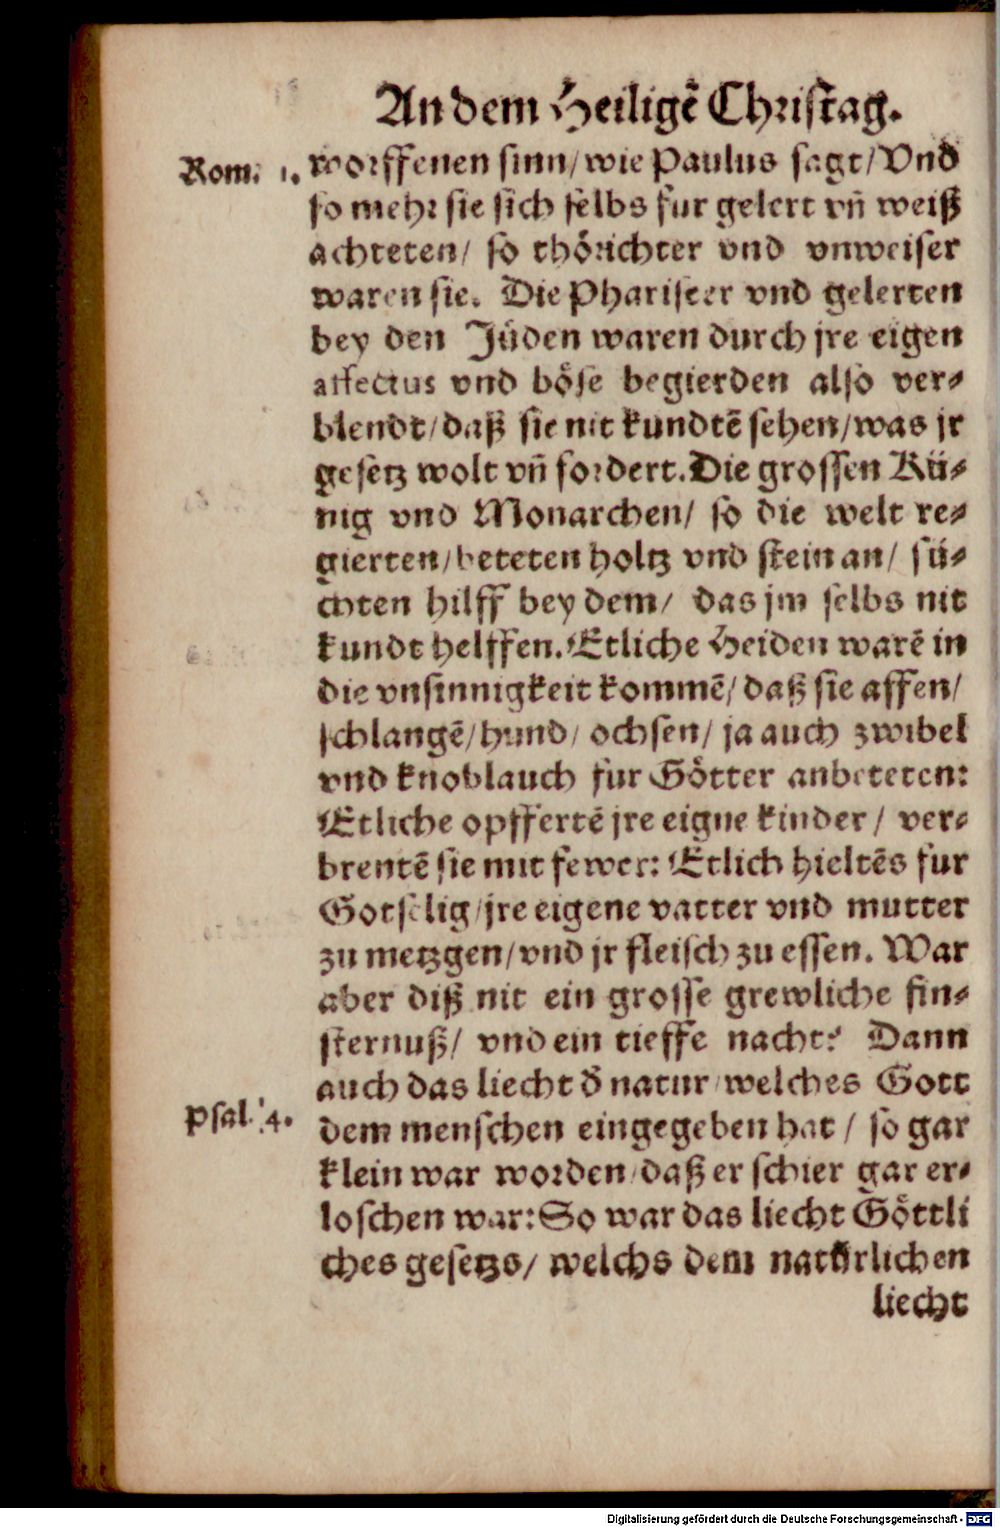 An dem Heiligē Christag.
Rom. 1.
worffenen sinn/wie Paulus sagt/Vnd
so mehr sie sich selbs fur gelert vñ weiß
achteten/ so thörichter vnd vnweiser
waren sie. Die Phariseer vnd gelerten
bey den Jüden waren durch jre eigen
affectus vnd böse begierden also ver-
blendt/daß sie nit kundtē sehen/was jr
gesetz wolt vñ fordert. Die grossen Kü-
nig vnd Monarchen/ so die welt re-
gierten/beteten holtz vnd stein an/ sü-
chten hilff bey dem/ das jm selbs nit
kundt helffen. Etliche Heiden warē in
die vnsinnigkeit kommē/daß sie affen/
schlangē/hund/ochsen/ja auch zwibel
vnd knoblauch fur Götter anbeteten:
Etliche opffertē jre eigne kinder/ ver-
brentē sie mit fewer: Etlich hieltēs fur
Gotselig/jre eigene vatter vnd mutter
zu metzgen/vnd jr fleisch zu essen. War
aber diß nit ein grosse grewliche fin-
sternuß/ vnd ein tieffe nacht? Dann
auch das liecht d̄ natur/welches Gott
Psal. 4.
dem menschen eingegeben hat/ so gar
klein war worden/daß er schier gar er-
loschen war: So war das liecht Göttli
ches gesetzs/ welchs dem natürlichen
liecht
Digitalisierung gefördert durch die Deutsche Forschungsgemeinschaft - DFG